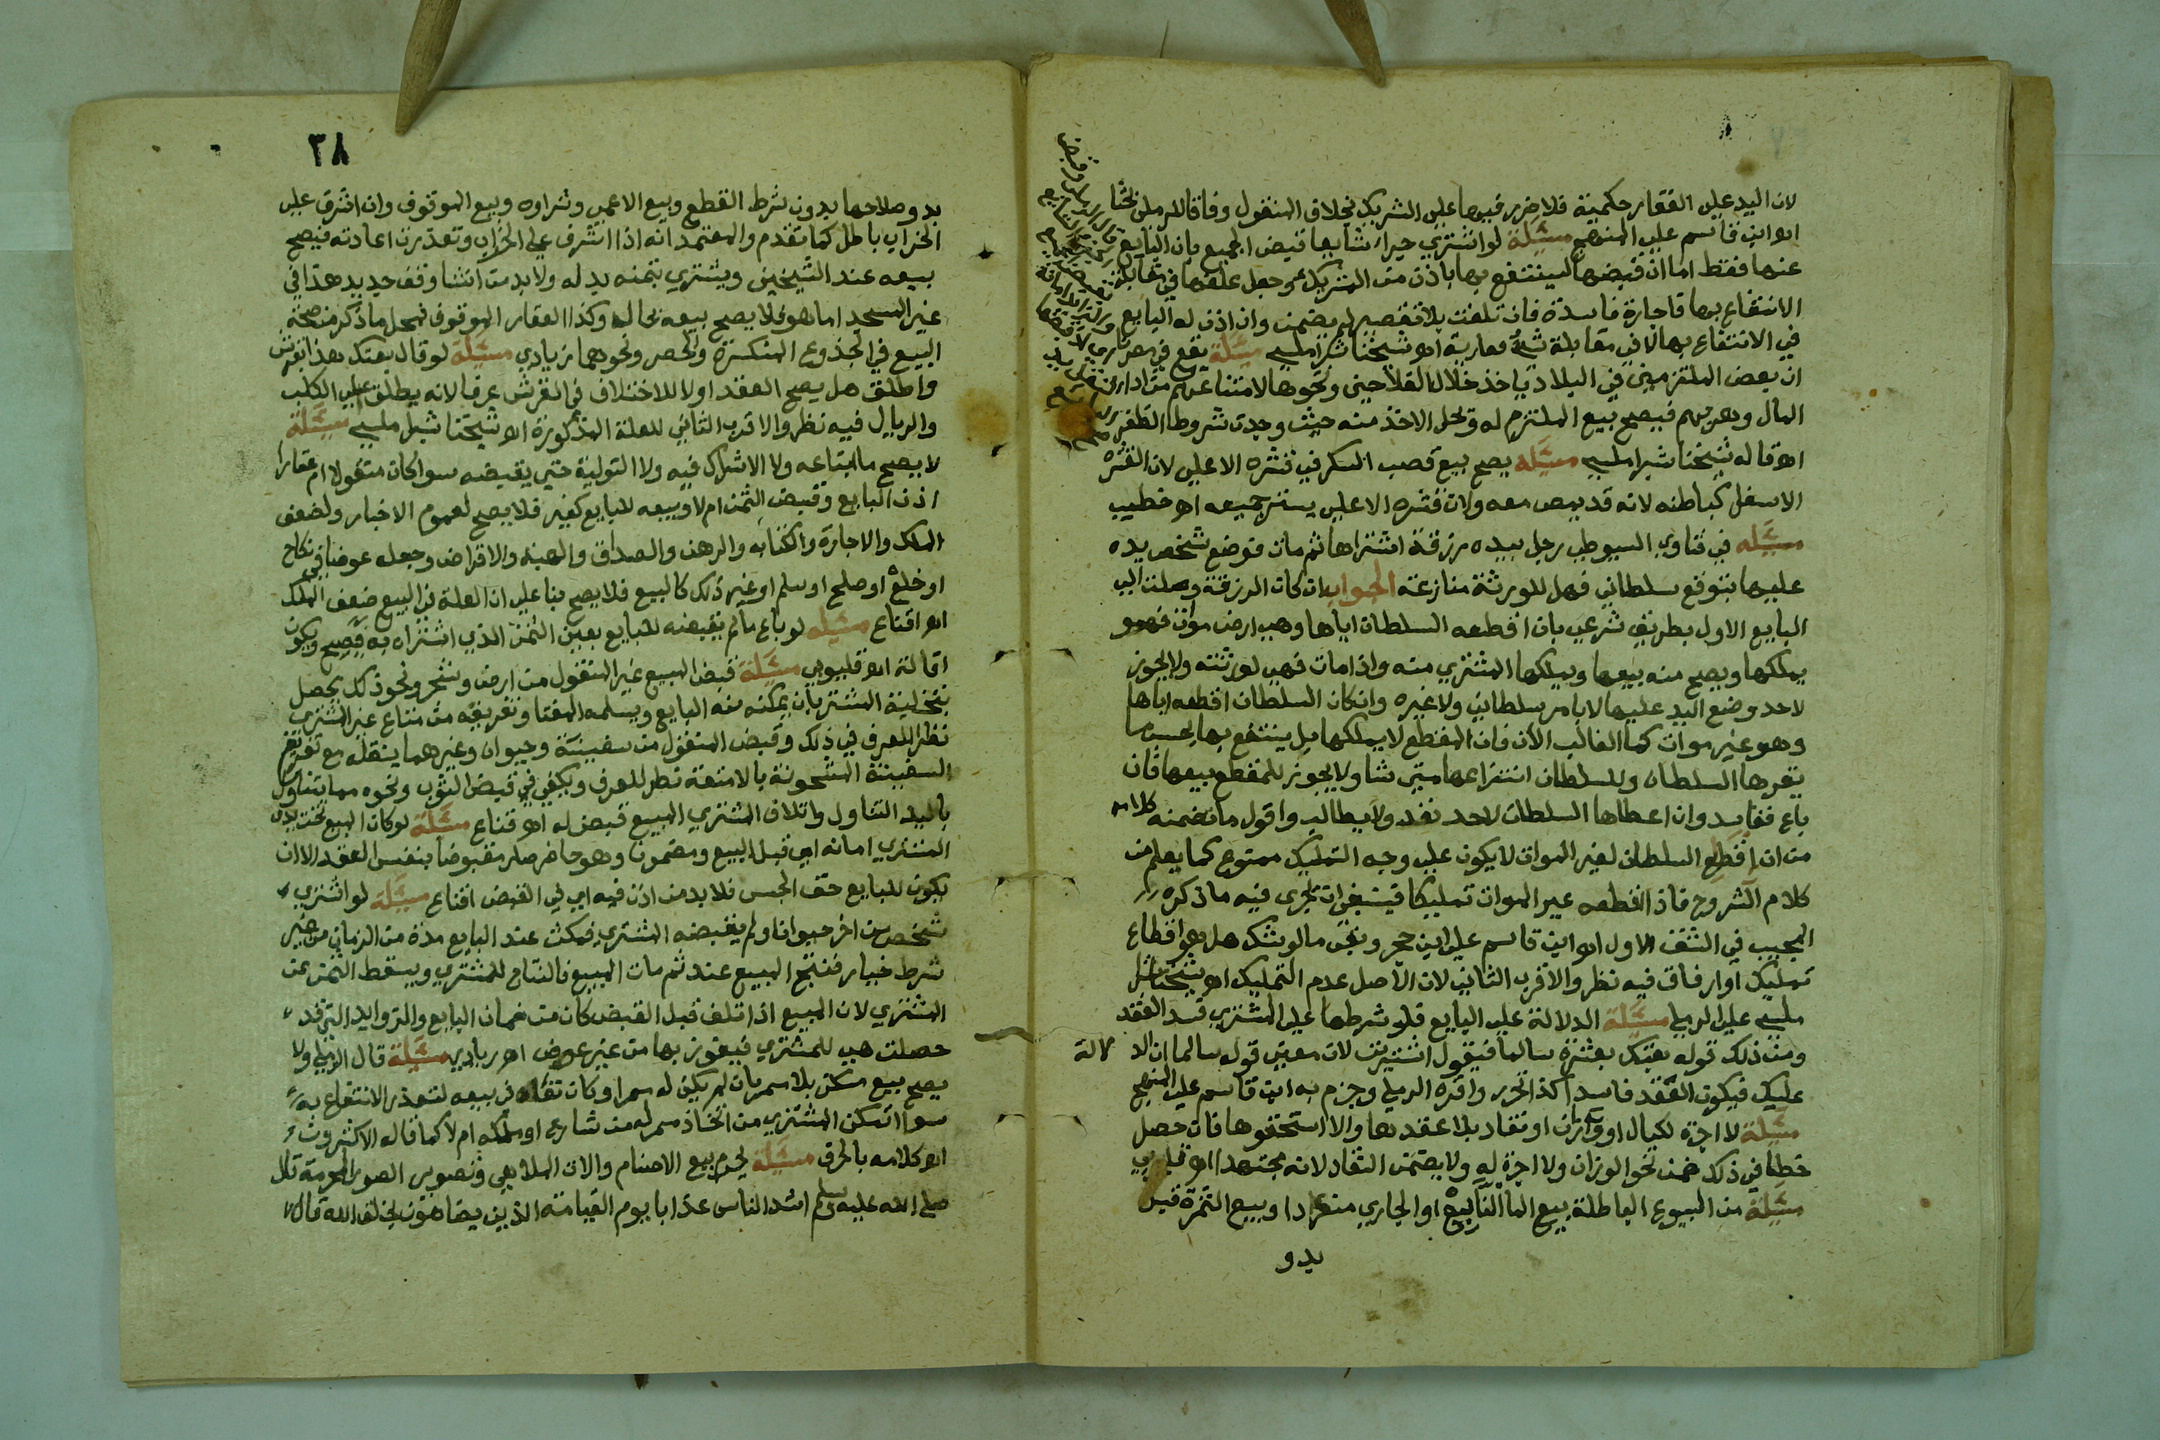 لان اليد على العقار حكمية فلا ضرر فيها على الشريك بخلاف المنقول وفاقا للرملى لمخنا
اهـ ابن قاسم على المنهج مسئلة لو اشترى حيوانا شايعا قبض الجميع باذن البايع
عنها فقط اما ان قبضها لينتفع بها باذن من الشريك وجعل علفها في مقابلة
الانتفاع بها فاجارة فاسدة فان تلفت بلا تقصير لم يضمن وان اذن له البايع
في الانتفاع بها لا في مقابلة شئ فعارية اهـ شيخنا شبراملسي مسئلة يقع في مصر
ان بعض الملتزمين في البلاد ياخذ غلال الفلاحين ونحوها لامتناعهم من اداء
المال وهروبهم فيصح بيع الملتزم له وتحل الاخذ منه حيث وجدت شروط الظفر
اهـ قاله شيخنا شبراملسي مسئلة يصح بيع قصب السكر في قشره الاعلى لان القشره
الاسفل كباطنه لانه قد يمص معه ولان قشره الاعلى يستر جميعه اهـ خطيب
مسئله في فتاوى السيوطي رجل بيده رزقة اشتراها ثم مات فوضع شخص يده
عليها بتوقع سلطاني فهل للورثة منازعته الجواب ان كان الرزقة وصلت الى
البايع الاول بطريق شرعي بان اقطعه السلطان اياها وهي ارض موات فهو
يملكها ويصح منه بيعها ويملكها المشتري منه واذا مات فهى لورثته ولا يجوز
لاحد وضع اليد عليها لا بامر سلطاني ولا غيره وان كان السلطان اقطعه اياها
وهو غير موات كما الغالب الان فان المقطع لا يملكها بل ينتفع بها بحسب ما
يقرها السلطان وللسلطان انتزاعها متى شا ولا يجوز للمقطع بيعها فان
باع ففاسد وان اعطاها السلطان لاحد نفد ولا يطالب واقول ما تضمنه كلامه
من ان اقطاع السلطان لغير الموات لا يكون على وجه التمليك ممنوع كما يعلم من
كلام الشروح فاذا اقطعه غير الموات تمليكا فينبغي ان يجرى فيه ما ذكره
المجيب في الشق الاول اهـ ابن قاسم على ابن حجر وبقى ما لو شك هل هو اقطاع
تمليك او ارفاق فيه نظر والاقرب الثاني لان الاصل عدم التمليك اهـ شيخنا شبرا
ملسي على الرملي مسئلة الدلالة على البايع فلو شرطها على المشتري فسد العقد
ومن ذلك قوله بعتك بعشرة سالما فيقول اشتريت لان معنى قوله سالما ان الد لالة
عليك فيكون العقد فاسدا كذا تحرر واقره الرملي وجزم به ابن قاسم على المنهج
مسئلة لا اجرة لكيال او وزان او نقاد بلا عقد بها والا استحقوها فان حصل
خطا في ذلك ضمن نحو الوزان ولا اجرة له ولا يضمن النقاد لانه مجتهد اهـ قليوبي
مسئلة من البيوع الباطلة بيع الما النابع او الجاري منفردا وبيع الثمرة قبل
بدو
٣٨
بدو صلاحها بدون شرط القطع وبيع الاعمى وشراوه وبيع الموقوف وان اشرف على
الخراب باطل كما تقدم والمعتمد انه اذا اشرف على الخراب وتعذرت اعادته فيصح
بيعه عند الشيخين ويشترى بثمنه بدله ولابد من انشا وقف جديد هذا في
غير المسجد اما هو فلا يصح بيعه بحال وكذا العقار الموقوف فمحل ما ذكر من صحة
البيع في الجذوع المنكسرة والحصر ونحوهما زيادي مسئلة لو قال بعتك هذا بقرش
واطلق هل يصح العقد اولا للاختلاف في القرش عرفا لانه يطلق على الكلب
والريال فيه نظر والاقرب الثاني للعلة المذكورة اهـ شيخنا شبراملسي مسئلة
لا يصح ما ابتاعه ولا الاشراك فيه ولا التولية حتى يقبضه سوا كان منقولا ام عقارا
اذن البايع وقبض الثمن ام لا وبيعه للبايع كغيره فلا يصح لعموم الاخبار ولضعف
الملك والاجارة والكتابه والرهن والصداق والهبه والاقراض وجعله عوضا في نكاح
او خلع او صلح او سلم او غير ذلك كالبيع فلا يصح بنا على ان العلة في البيع ضعف الملك
اهـ اقناع مسئله لو باع ما لم يقبضه للبايع بعين الثمن الذي اشتراه به فيصح ويكون
اقالة اهـ قليوبي مسئلة قبض المبيع غير المنقول من ارض وشجر ونحو ذلك يحصل
بتخلية المشتر بان يمكنه منه البايع ويسلمه المفتا وتفريغه من متاع غير المشتري
نظرا للعرف في ذلك وقبض المنقول من سفينة وحيوان وغيرهما بنقله مع تفريغ
السفينة المشحونة بالامتعة نظر للعرف ويكفي في قبض الثوب ونحوه مما يتناول
باليد التناول واتلاف المشتري المبيع قبض له اهـ قناع مسئلة لو كان المبيع تحت يد
المشتري امانة اي قبل البيع ومضمون وهو حاضر صار مقبوضا بنفس العقد الا ان
يكون للبايع حق الحبس فلابد من اذن فيه اي في القبض اقناع مسئلة لو اشترى
شخص من اخر حيوانا ولم يقبضه المشتري فمكث عند البايع مدة من الزمان من غير
شرط خيار فنتج المبيع عنده ثم مات المبيع فالنتاج للمشتري ويسقط الثمن عن
المشتري لان المبيع اذا تلف قبل القبض كان من ضمان البايع والزوايد التي قد
حصلت هى للمشتري فيفوز بها من غير عوض اهـ زيادي مسئلة قال الرملي ولا
يصح بيع مسكن بلا ممر بان لم يكن له ممر او كان نفاه في بيعه لتعذر الانتفاع به
سوا اتمكن المشتري من اتخاذ ممر له من شارع او ملكه ام لا كما قاله الاكثرون
اهـ كلامه بالحرف مسئلة يحرم بيع الاصنام والات الملاهي وتصوير الصور المحرمة قال
صلى الله عليه وسلم اشد الناس عذابا يوم القيامة الذين يضاهون بخلق الله قال